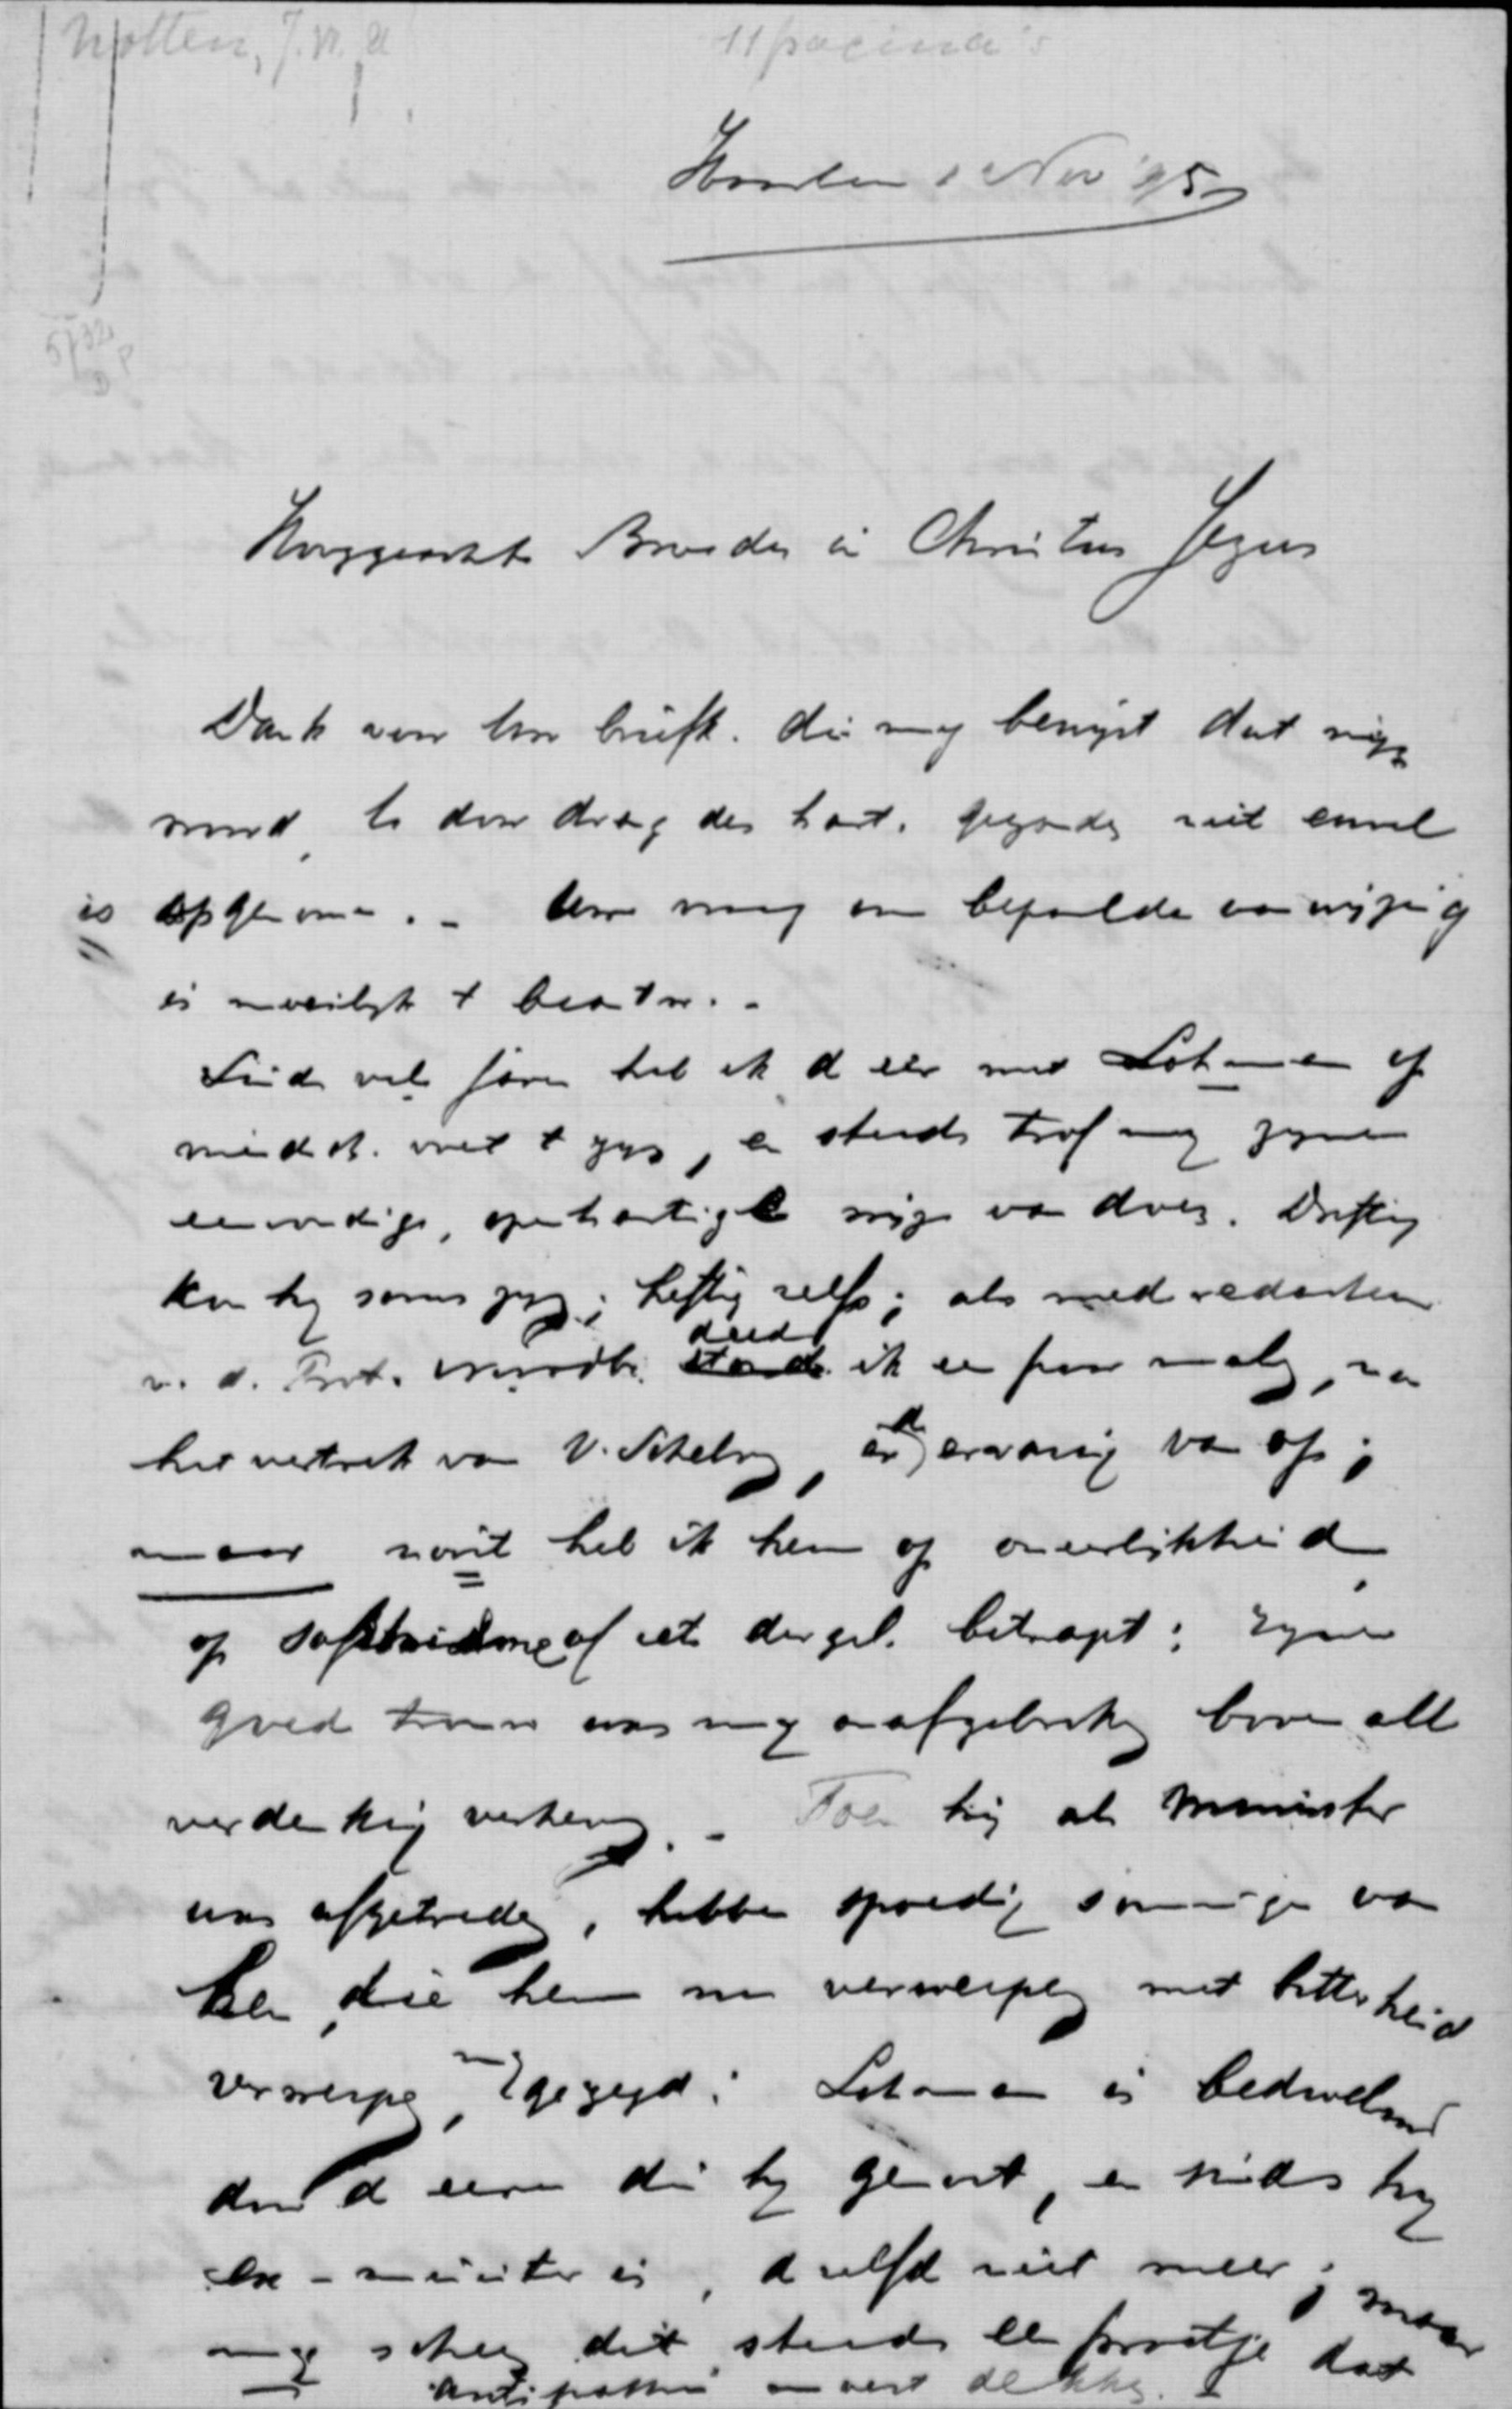 11 pagina's
Haarlem 1 Nov '95
Hooggeachte Broeder in Christus Jezus
Dank voor Uw briefk. die my bewyst dat myn
woord, te door drong des harts gegeven, niet euvel
is opgenomen. - Uwe vraag om bepaalde aanwijzing
is moeilijk te beantw. -
Sinds vele jaren heb ik d eer met Lohman op
te zyn, en steeds trof my zyne
eenvoudige, openhartige wijze van doen. Driftig
kon hy soms zyn; heftig zelfs; als mederedacteur
v. d. deed ik een paar malen, na
het vertrek van V. , er ervaring van op;
maar nooit heb ik hem op oneerlijkheid
op of iets dergel. betrapt; zyne
goede trouw was my onafgebroken boven alle
verdenking verheven. - Toen hij als Minister
was afgetreden, hebben spoedig sommigen van
hen, die hem nu verwerpen met bitterheid
verwerpen, gezegd: Lohman is bedwelmd
door d eere die hy genoot, en sinds hy
ex-minister is, d zelfde niet meer; maar
my scheen dit steeds een praatje dat
antipathie moest dekken.